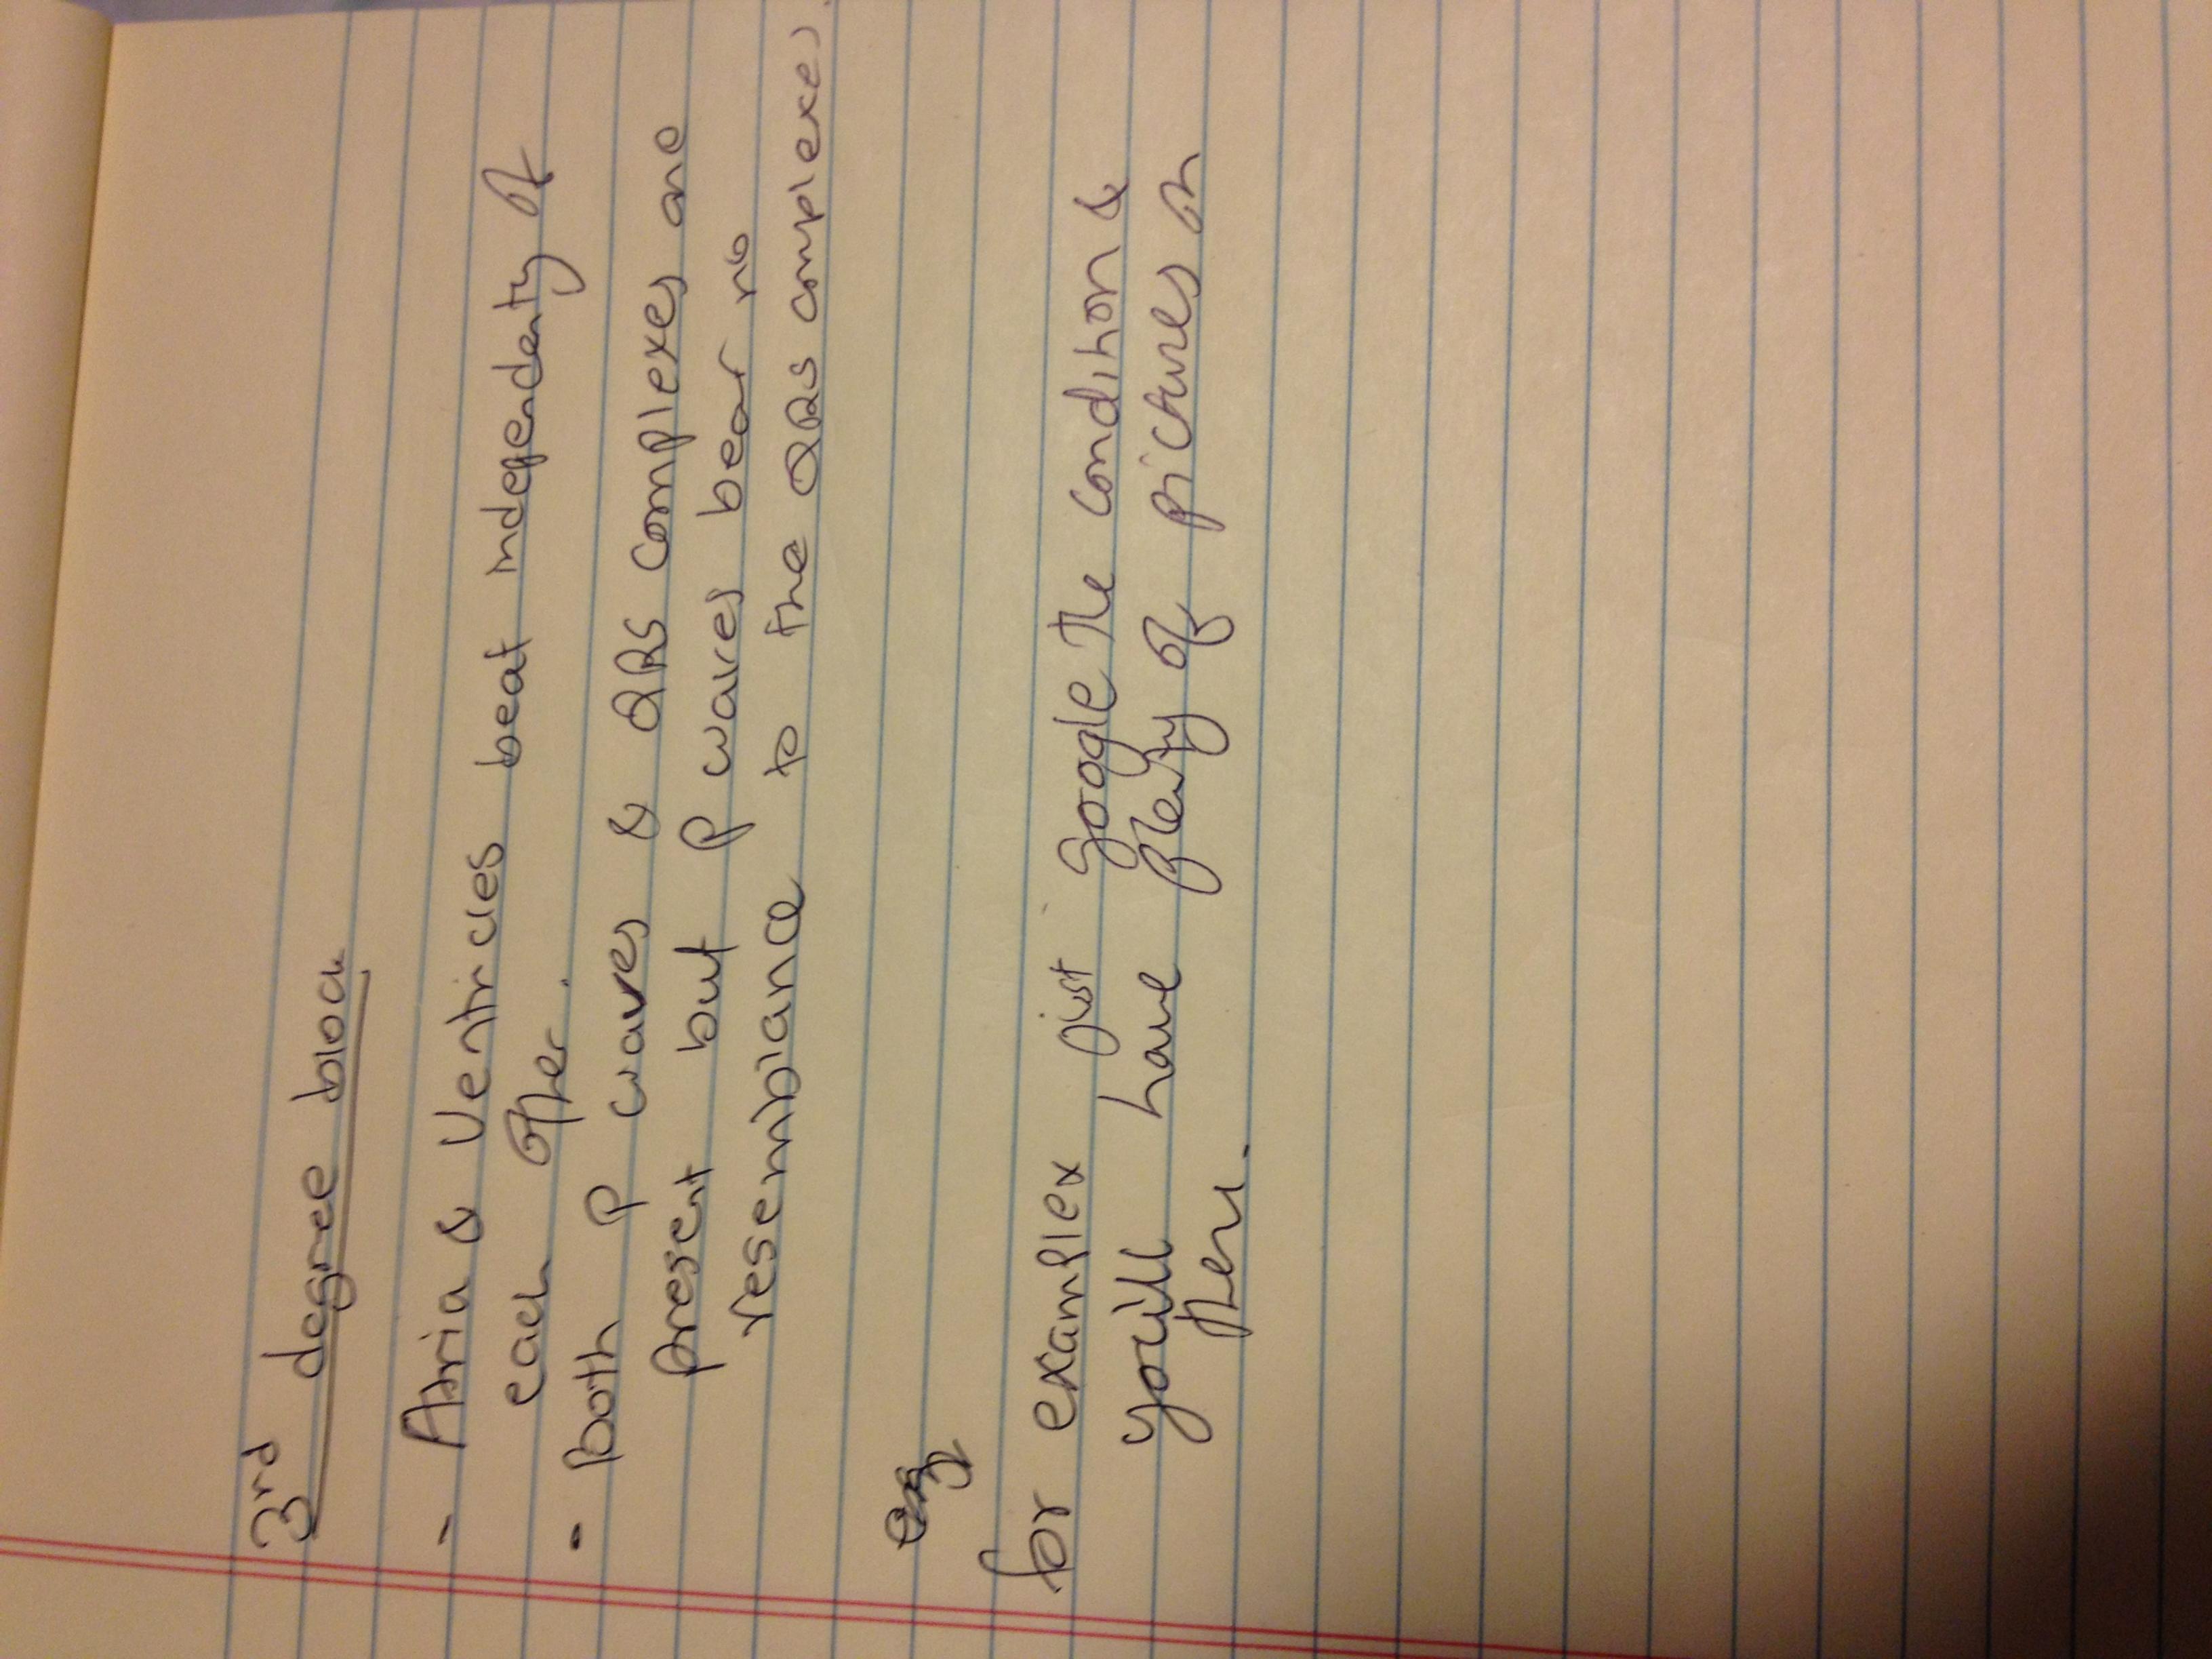 3rd degree block
- Atria & Ventricles beat independently of
each other.
- Both P waves & QRS complexes are
present but P waves bear no
resemblance to the QRS complexes
for examples just google the condition &
you'll have plenty of pictures on
there.